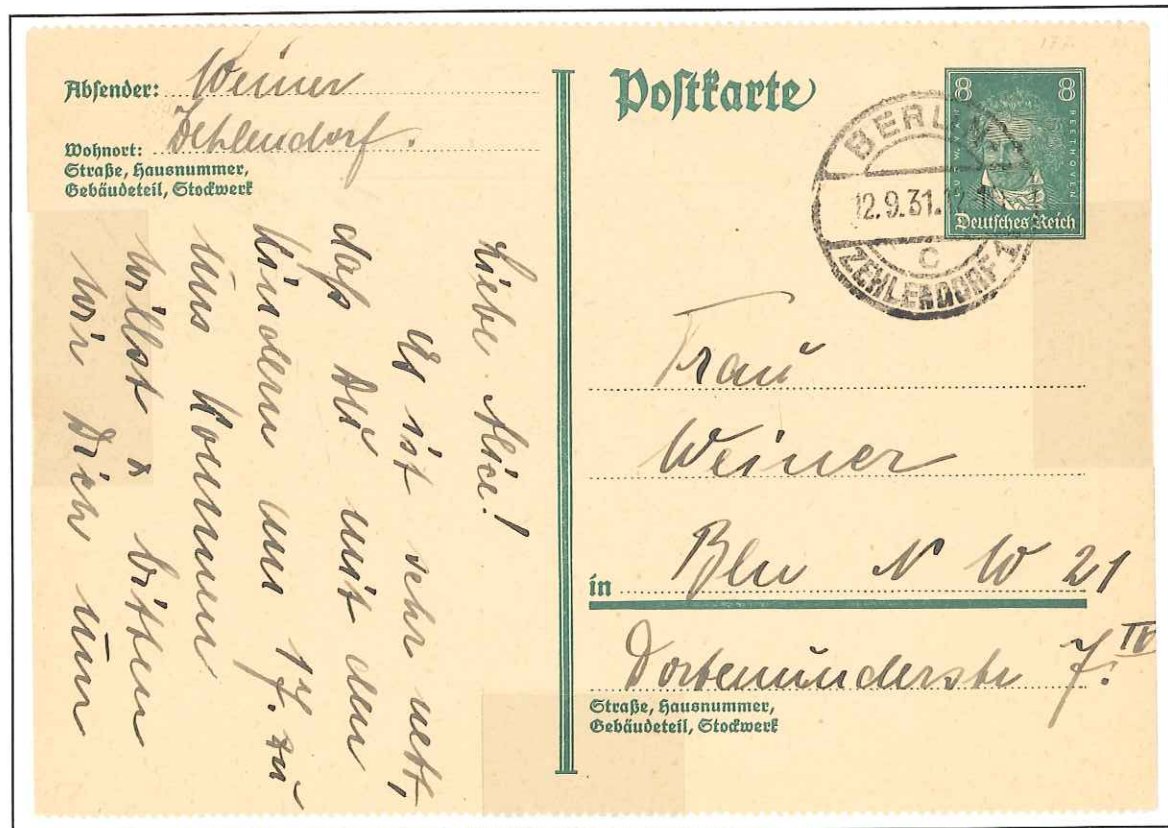 Absender: Weiner
Zehlendorf.
Wohnort:
Straße, Hausnummer,
Gebäudeteil, Stockwerk
Liebe Alice!
Es ist sehr nett,
daß Du mit den
Kindern am 17. zu
uns kommen
willst & bitten
wir Dich um
Postkarte
8 8
BEETHOVEN
Deutsches Reich
BERLIN-
12.9.31.12-1
c
ZEHLENDORF 1
Frau
Weiner
in Bln N W 21
Dortmunderstr 7. IV
Straße, Hausnummer,
Gebäudeteil, Stockwerk